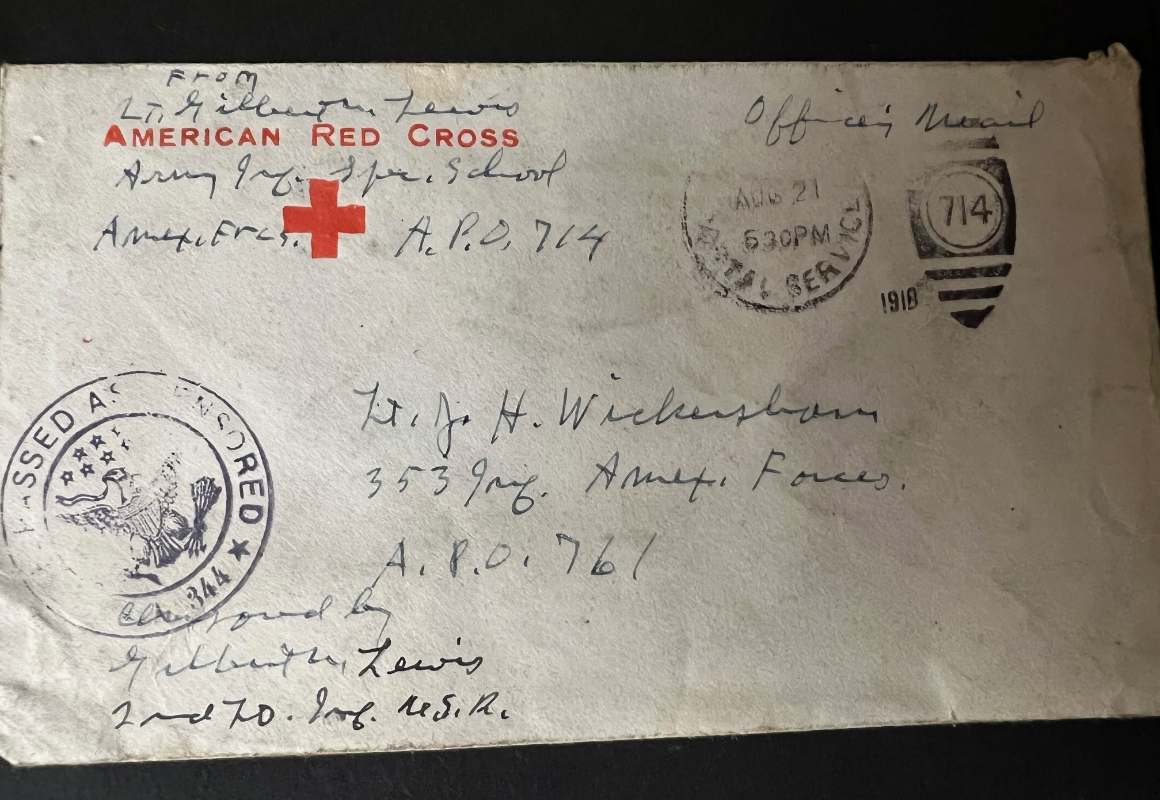 From
Lt. Gilbert M. Lewis
AMERICAN RED CROSS
Army Inf. Spec. School
Amex. Frcs. A.P.O. 714
Officer's Mail
AUG 21
530PM
POSTAL SERVICE
714
1918
PASSED AS CENSORED
344
Lt. J. H. Wickersham
353 Inf. Amex. Forces.
A.P.O. 761
Censored by
Gilbert M. Lewis
2nd Lt. Inf. U.S.R.